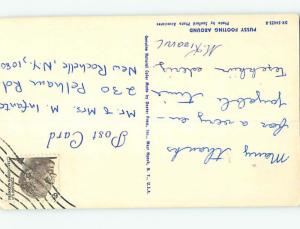 PUSSY FOOTING AROUND
Photo by Zantzig Photo Associates
Many thanks
for a very en-
joyable time
Post Card
Mr & Mrs. M. Infante
230 Pelham Rd
New Rochelle, N.Y. 10805
Genuine Natural Color Made by Dexter Press, Inc., West Nyack, N. Y., U.S.A.